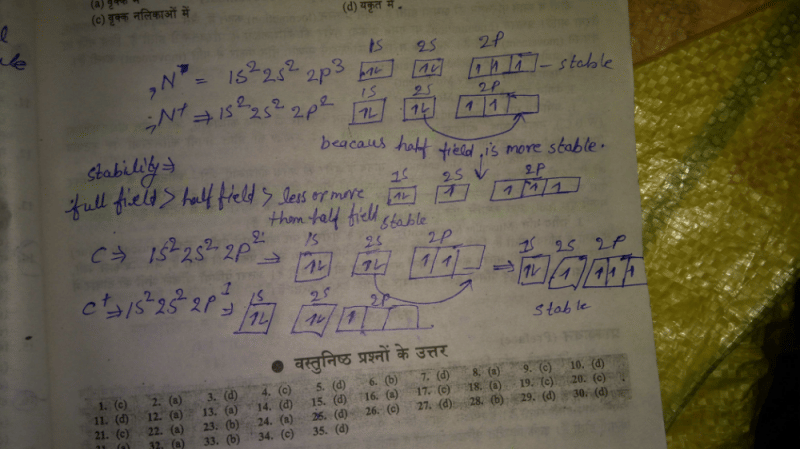 (a) वृक्क में
(c) वृक्क नलिकाओं में (d) यकृत में .
1S 2S 2P
₇N = 1S² 2S² 2P³ 1L 1L 1 1 1 – stable
1S 2S 2P
N⁺ ⇒ 1S² 2S² 2P² 1L 1L 1 1
beacaus half field is more stable.
Stability ⇒
full field > half field > less or more
1S 2S 2P
1L 1 1 1 1
them half field stable
1S 2S 2P 1S 2S 2P
C ⇒ 1S² 2S² 2P² ⇒ 1L 1L 1 1 ⇒ 1L 1 1 1 1
stable
1S 2S 2P
C⁺ ⇒ 1S² 2S² 2P¹ ⇒ 1L 1L 1
● वस्तुनिष्ठ प्रश्नों के उत्तर
1. (c) 2. (a) 3. (d) 4. (c) 5. (d) 6. (b) 7. (d) 8. (a) 9. (c) 10. (d)
11. (d) 12. (a) 13. (a) 14. (d) 15. (d) 16. (a) 17. (c) 18. (a) 19. (c) 20. (c)
21. (c) 22. (a) 23. (b) 24. (a) 26. (d) 26. (c) 27. (d) 28. (b) 29. (d) 30. (d)
32. (a) 33. (b) 34. (c) 35. (d)